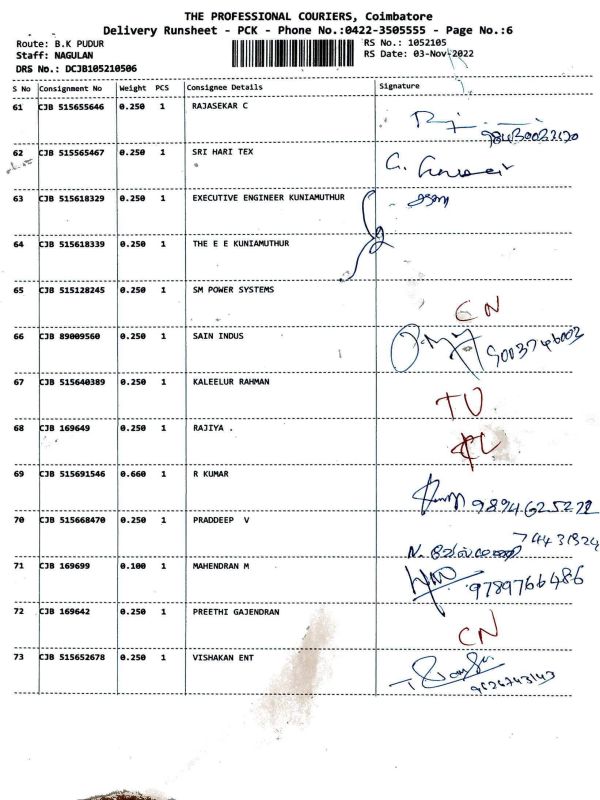 THE PROFESSIONAL COURIERS, Coimbatore
Delivery Runsheet - PCK - Phone No.:0422-3505555 - Page No.:6
Route: B.K PUDUR RS No.: 1052105
Staff: NAGULAN RS Date: 03-Nov-2022
DRS No.: DCJB105210506
S No Consignment No Weight PCS Consignee Details Signature
61 CJB 515655646 0.250 1 RAJASEKAR C
62 CJB 515565467 0.250 1 SRI HARI TEX
63 CJB 515618329 0.250 1 EXECUTIVE ENGINEER KUNIAMUTHUR
64 CJB 515618339 0.250 1 THE E E KUNIAMUTHUR
65 CJB 515128245 0.250 1 SM POWER SYSTEMS CN
66 CJB 89009560 0.250 1 SAIN INDUS 9003746003
67 CJB 515640389 0.250 1 KALEELUR RAHMAN TU
68 CJB 169649 0.250 1 RAJIYA .
69 CJB 515691546 0.660 1 R KUMAR
70 CJB 515668470 0.250 1 PRADDEEP V
71 CJB 169699 0.100 1 MAHENDRAN M 9789766486
72 CJB 169642 0.250 1 PREETHI GAJENDRAN CN
73 CJB 515652678 0.250 1 VISHAKAN ENT